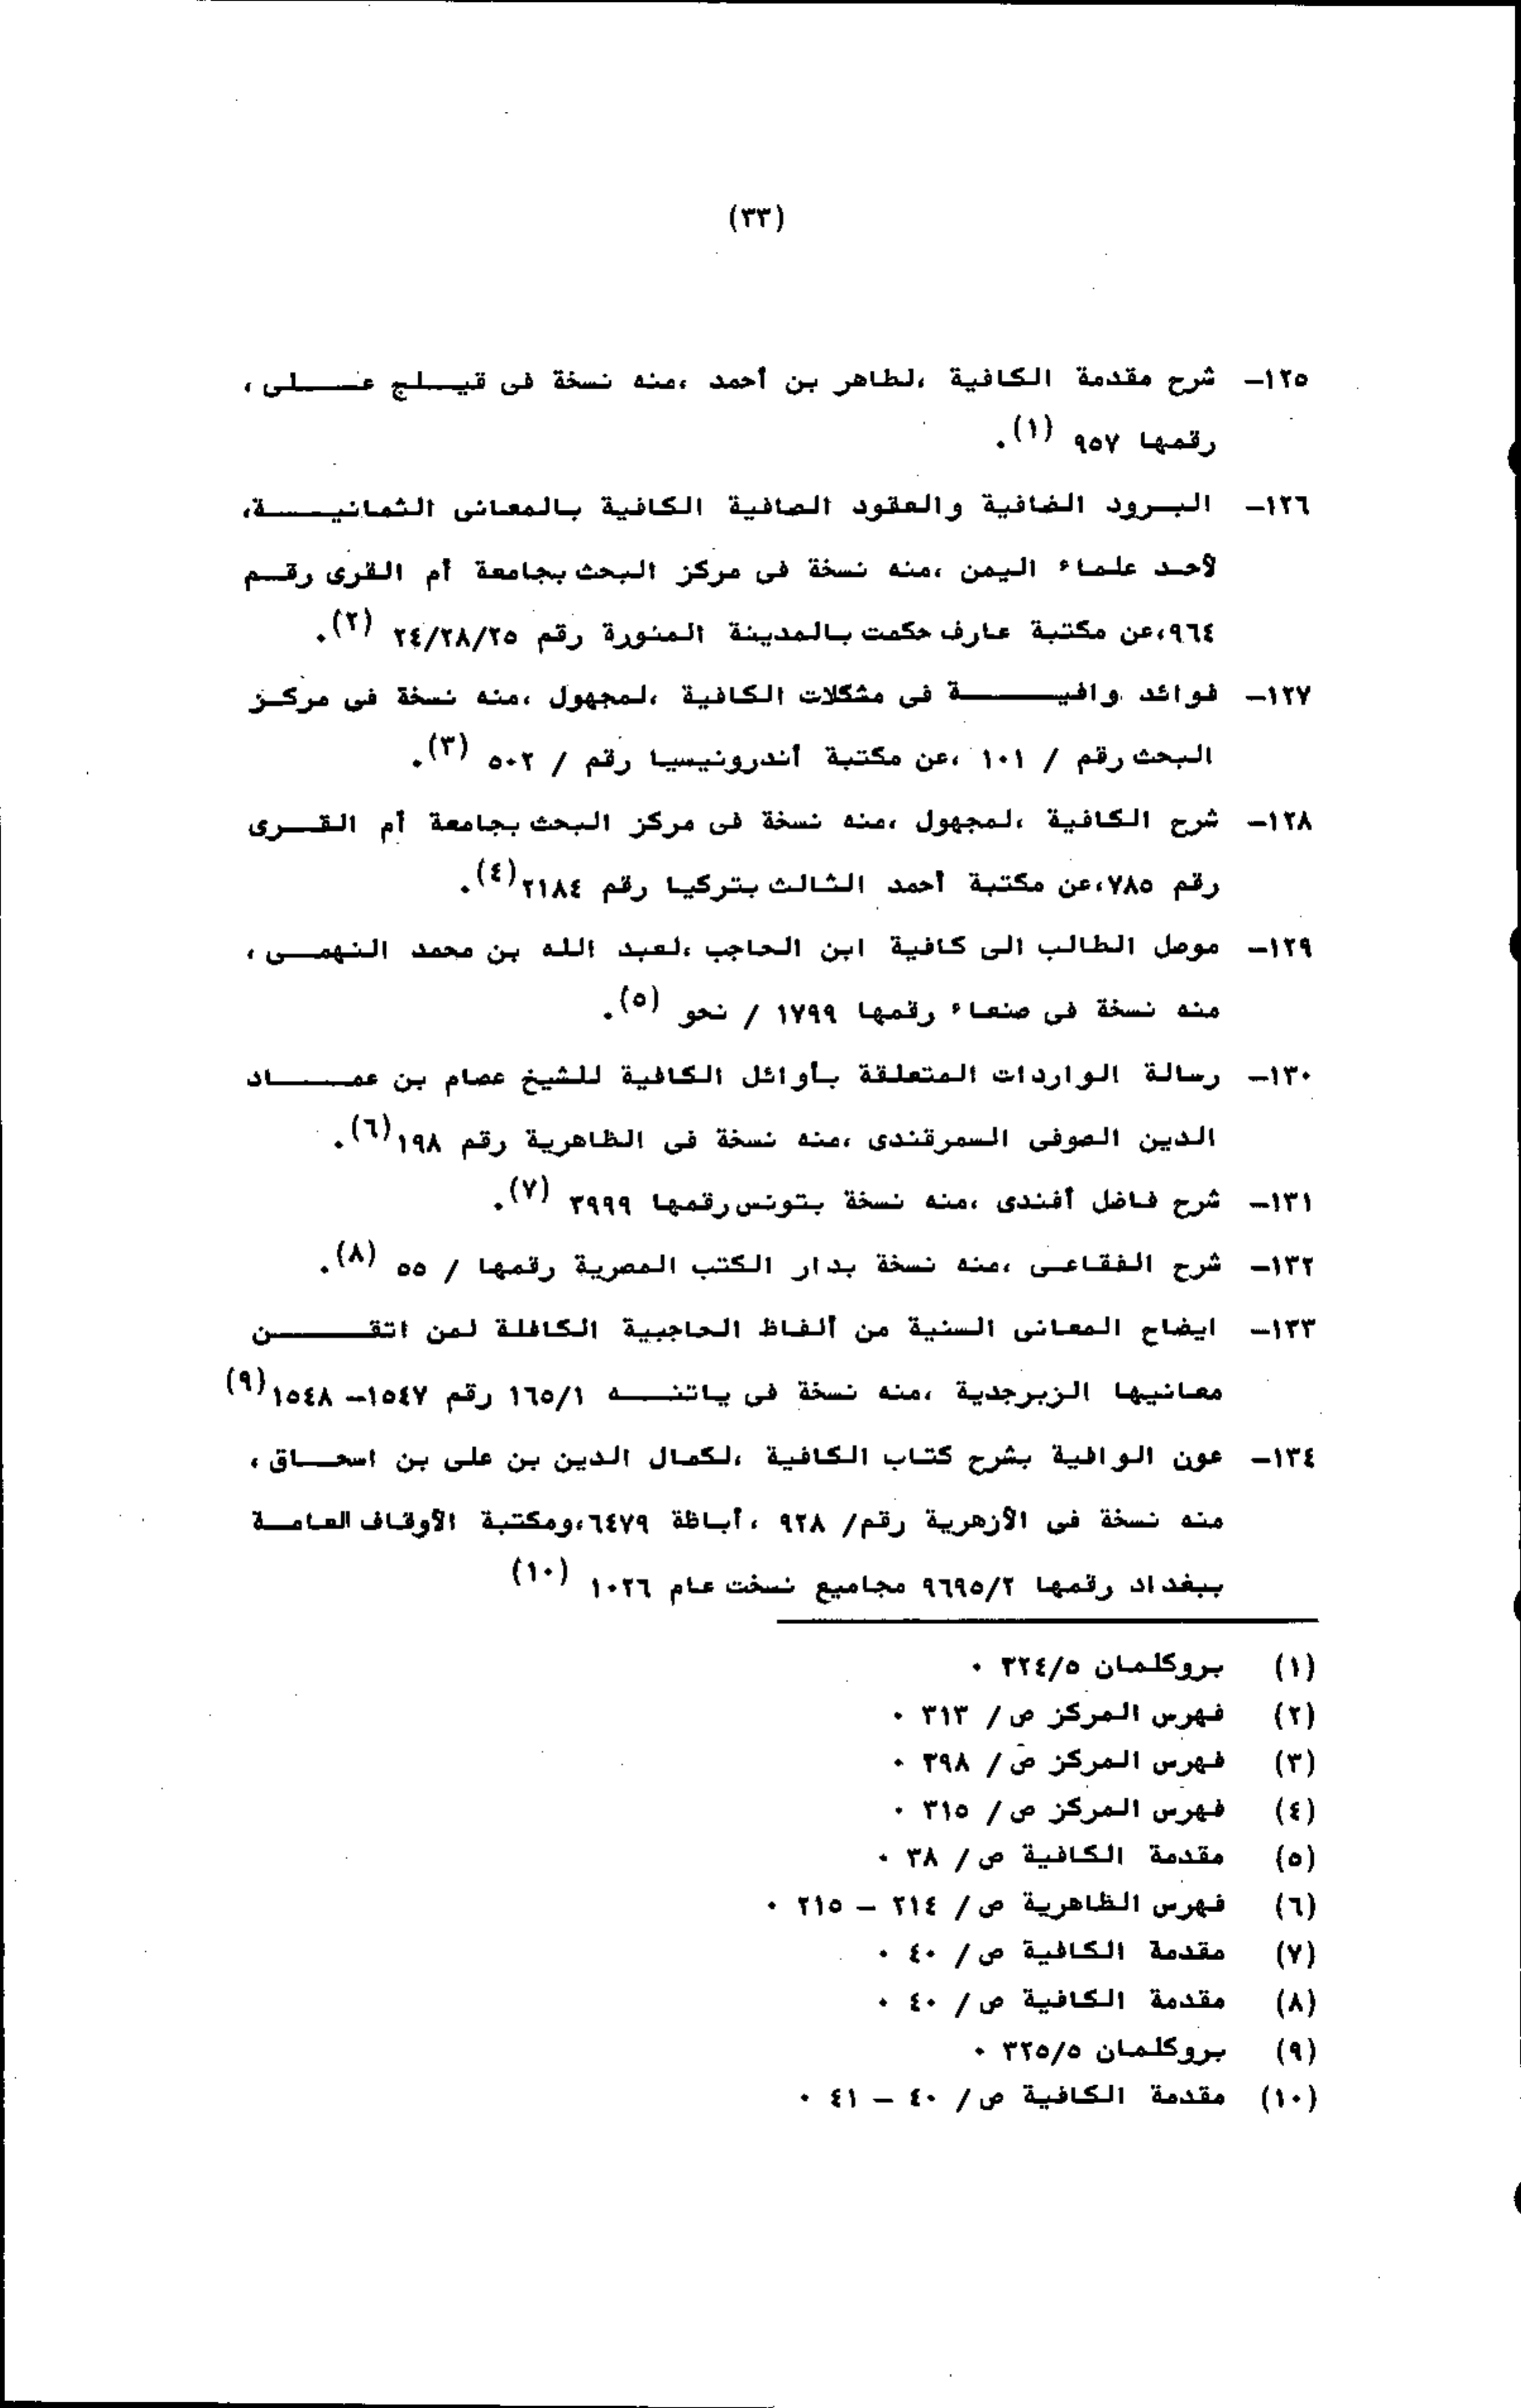 (٣٣)
١٢٥- شرح مقدمة الكافية ،لطاهر بن أحمد ،منه نسخة فى قيلج على ،
رقمها ٩٥٧ (١).
١٢٦- البرود الضافية والعقود الصافية الكافية بالمعانى الثمانية،
لأحد علماء اليمن ،منه نسخة فى مركز البحث بجامعة أم القرى رقم
٩٦٤،عن مكتبة عارف حكمت بالمدينة المنورة رقم ٢٤/٢٨/٢٥ (٢).
١٢٧- فوائد وافية فى مشكلات الكافية ،لمجهول ،منه نسخة فى مركز
البحث رقم / ١٠١ ،عن مكتبة أندرونيسيا رقم / ٥٠٢ (٣).
١٢٨- شرح الكافية ،لمجهول ،منه نسخة فى مركز البحث بجامعة أم القرى
رقم ٧٨٥،عن مكتبة أحمد الثالث بتركيا رقم ٢١٨٤(٤).
١٢٩- موصل الطالب الى كافية ابن الحاجب ،لعبد الله بن محمد النهمى ،
منه نسخة فى صنعاء رقمها ١٧٩٩ / نحو (٥).
١٣٠- رسالة الواردات المتعلقة بأوائل الكافية للشيخ عصام بن عماد
الدين الصوفى السمرقندى ،منه نسخة فى الظاهرية رقم ١٩٨(٦).
١٣١- شرح فاضل أفندى ،منه نسخة بتونس رقمها ٣٩٩٩ (٧).
١٣٢- شرح الفقاعى ،منه نسخة بدار الكتب المصرية رقمها / ٥٥ (٨).
١٣٣- ايضاح المعانى السنية من ألفاظ الحاجبية الكافلة لمن اتقن
معانيها الزبرجدية ،منه نسخة فى ياتنه ١٦٥/١ رقم ١٥٤٧- ١٥٤٨(٩)
١٣٤- عون الوافية بشرح كتاب الكافية ،لكمال الدين بن على بن اسحاق ،
منه نسخة فى الأزهرية رقم/ ٩٢٨ ،أباظة ٦٤٧٩،ومكتبة الأوقاف العامة
ببغداد رقمها ٩٦٩٥/٢ مجاميع نسخت عام ١٠٢٦ (١٠)
(١) بروكلمان ٣٢٤/٥ ٠
(٢) فهرس المركز ص/ ٣١٣ ٠
(٣) فهرس المركز ص/ ٣٩٨ ٠
(٤) فهرس المركز ص/ ٣١٥ ٠
(٥) مقدمة الكافية ص/ ٣٨ ٠
(٦) فهرس الظاهرية ص/ ٢١٤ - ٢١٥ ٠
(٧) مقدمة الكافية ص/ ٤٠ ٠
(٨) مقدمة الكافية ص/ ٤٠ ٠
(٩) بروكلمان ٣٢٥/٥ ٠
(١٠) مقدمة الكافية ص/ ٤٠ - ٤١ ٠